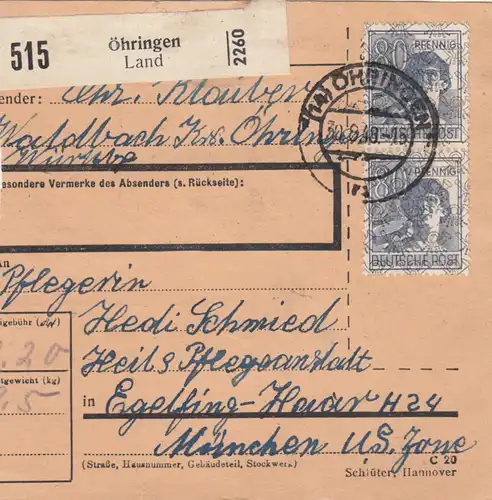 515
Öhringen
Land
2260
80 PFENNIG
(14) ÖHRINGEN
DEUTSCHE POST
80 PFENNIG
DEUTSCHE POST
ender: Chr. Klaiber
Waldbach Kr. Öhring
Württbg
esondere Vermerke des Absenders (s. Rückseite):
An
Pflegerin
Hedi Schmied
Heil & Pflegeanstalt
in Egelfing-Haar H 24
München U.S. Zone
(Straße, Hausnummer, Gebäudeteil, Stockwerk)
C 20
Schlüter, Hannover
tgewicht (kg)